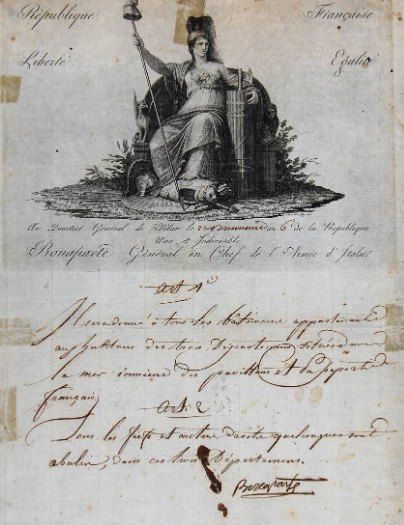 République Française
Liberté Egalité
Au Quartier Général de Milan le brumaire an 6 de la République
Une et Indivisible
Bonaparte Général en Chef de l'Armée d'Italie
Art 1er
Il sera donné à tous les bâtiments appartenants
aux habitans des trois Départements situés dans
la mer ionienne des pavillons et des passeports
français
Art. 2
Tous les fiefs et autre droits quelconques sont
abolis, dans ces trois Départemens.
Bonaparte